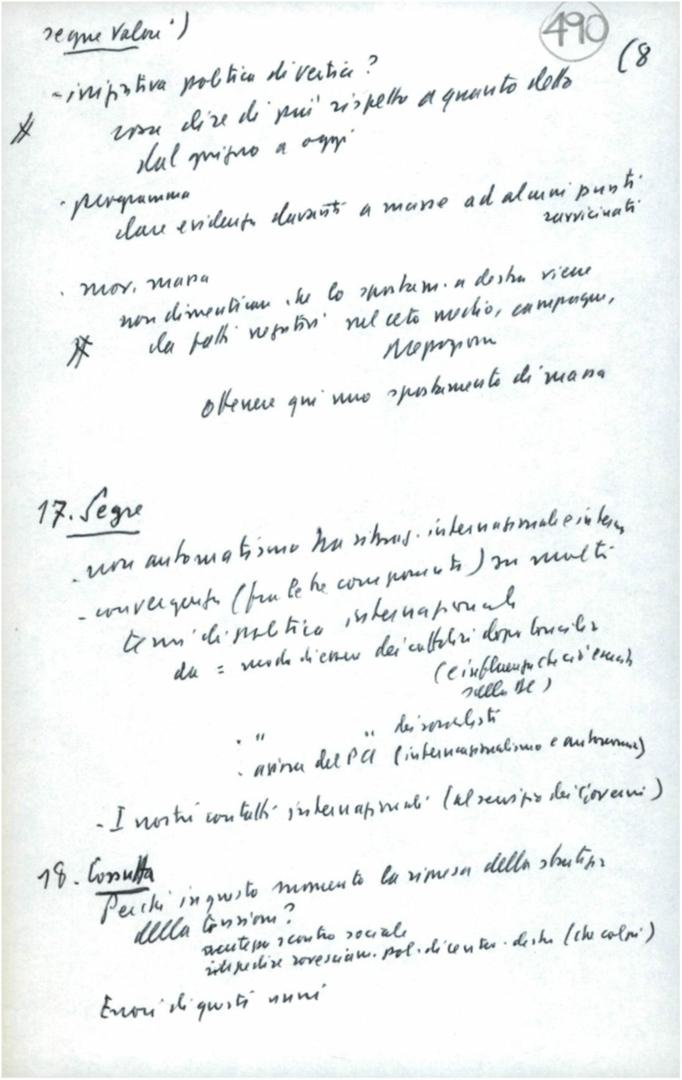 segue Valori)
490
(8
- iniziativa politica di vertice?
cosa dire di più rispetto a quanto detto
dal giugno a oggi
· programma
dare evidenza davanti a masse ad alcuni punti
ravvicinati
· mov. massa
non dimenticare che lo spostam. a destra viene
da fatti negativi nel ceto medio, campagne,
Mezzogiorno
ottenere qui uno spostamento di massa
17. Segre
- non automatismo tra situaz. internazionale e interna
- convergenza (fra le tre componenti) su molti
temi di politica internazionale
da = modo di essere dei cattolici dopo Concilio
(e influenza che ciò
sulla DC)
· " " dei socialisti
· azione del PCI (internazionalismo e autonomia)
- I nostri contatti internazionali (al servizio dei Governi)
18. Cossutta
Perché in questo momento la ripresa della strategia
della tensione?
scontro sociale
rovesciam. pol. di centro-destra (che colpì)
Errori di questi anni